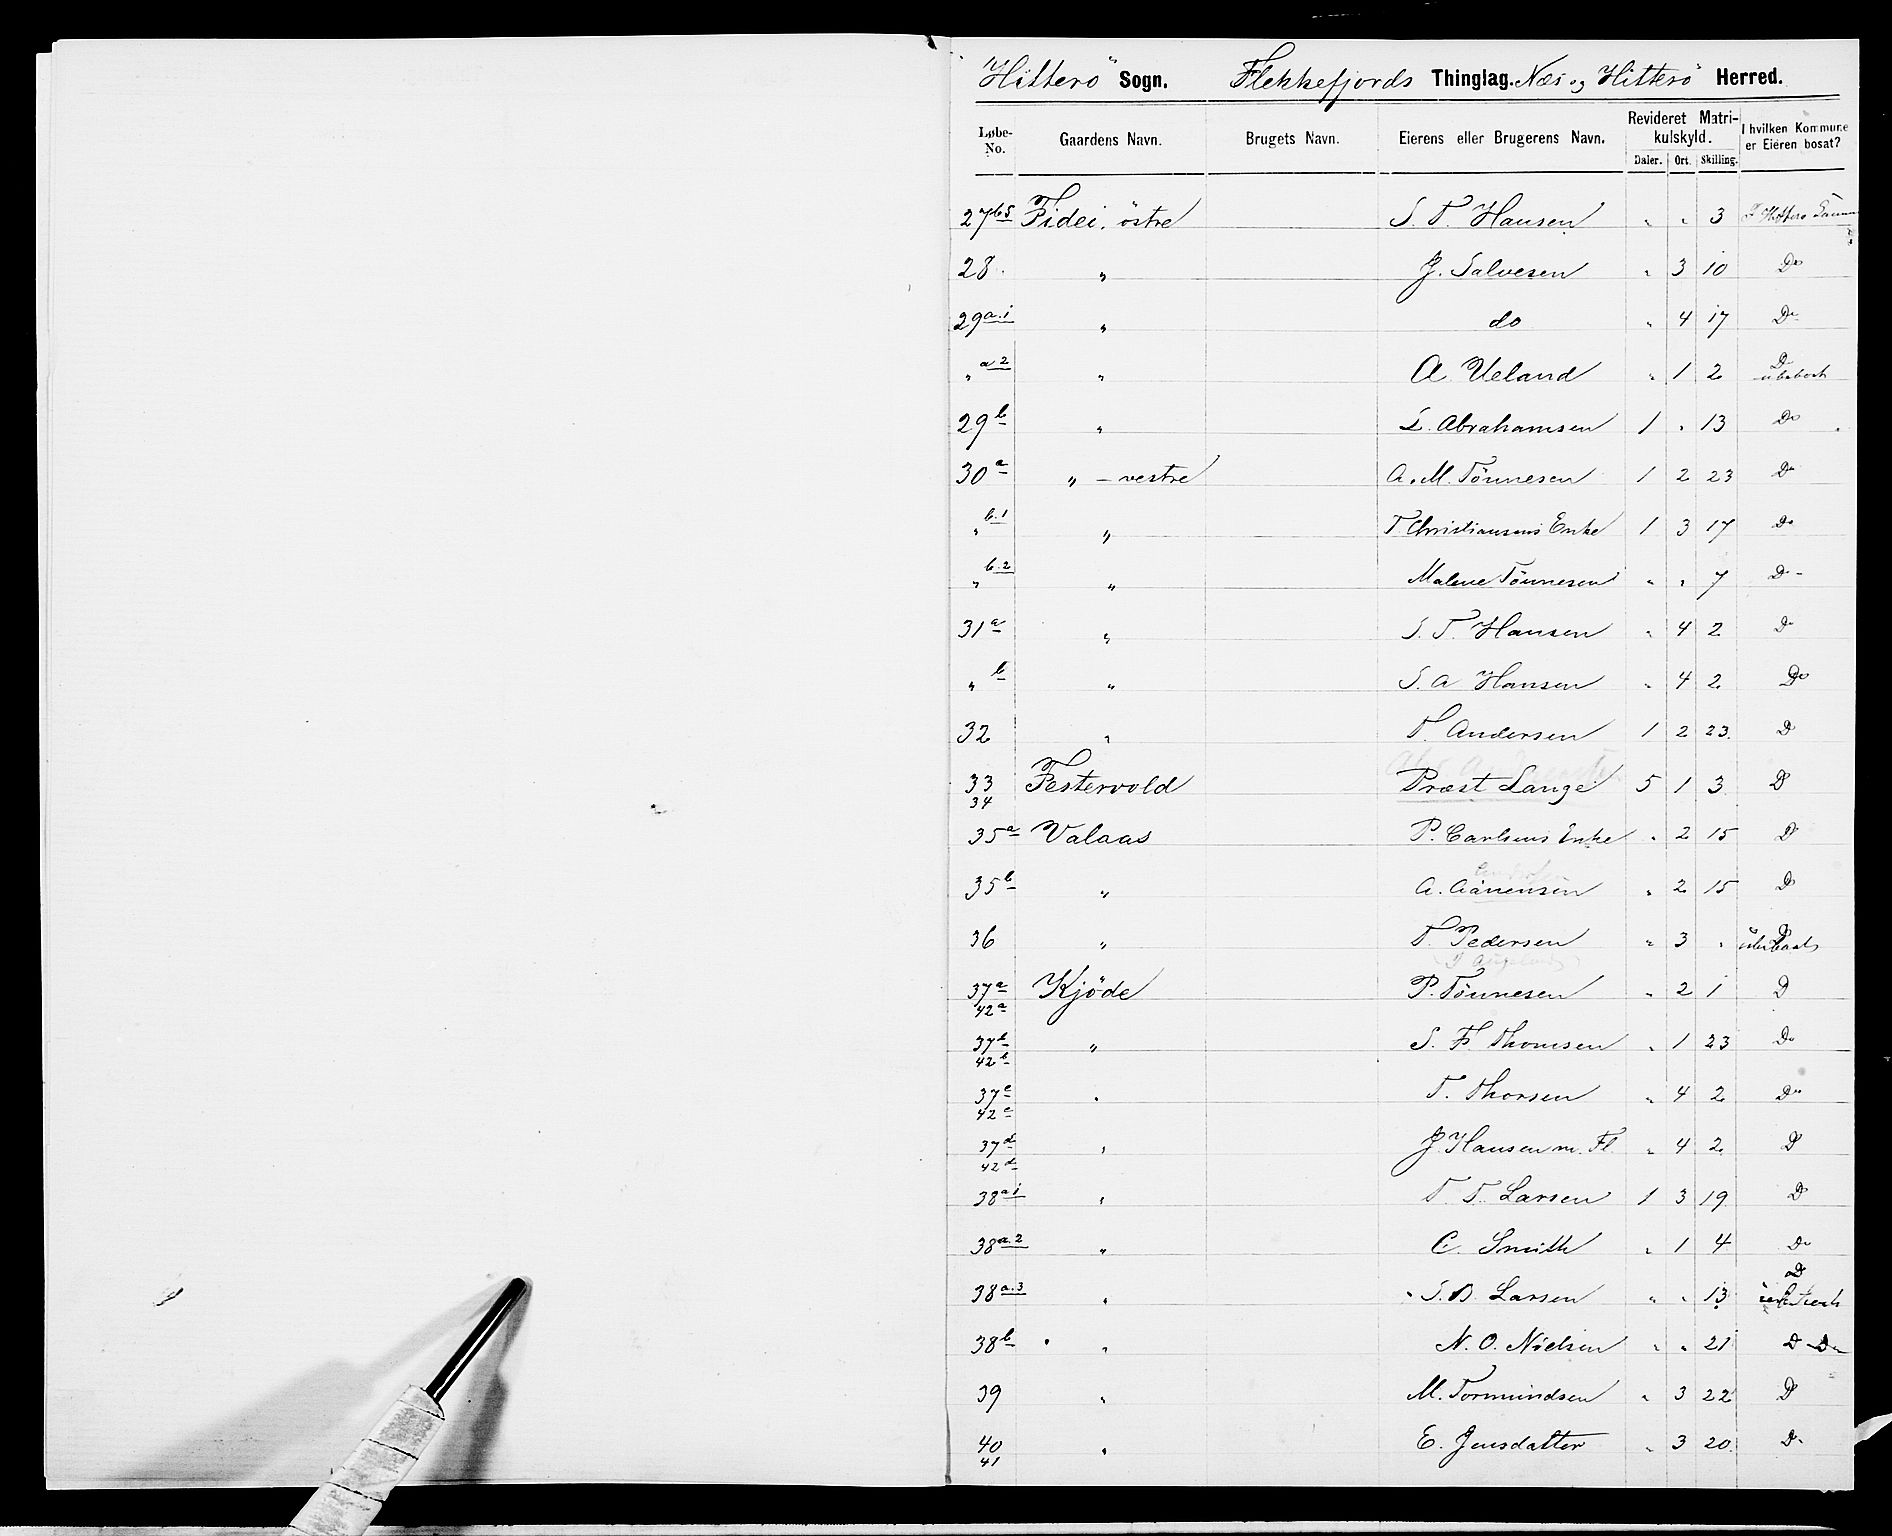 "Hitterö" Sogn. Flekkefjords Thinglag. Næs og Hitterö Herred.
Løbe-No. Gaardens Navn. Brugets Navn. Eierens eller Brugerens Navn. Revideret Matrikulskyld. I hvilken Kommune er Eieren bosat?
Daler. Ort. Skilling.
27 b5 Fidei, östre S. T. Hansen " " 3 I Hitterö
28 " J. Salvesen " 3 10 Do
29 a.1 " do " 4 17 Do
" a 2 " A Ueland " 1 2 D
29 b " L. Abrahamsen 1 " 13 Do
30 a " - vestre A. M. Tönnesen 1 2 23 Do
" b.1 " T. Christiansens Enke 1 3 17 Do
" b.2 " Malene Tönnesen " " 7 D -
31 a " S. T. Hansen " 4 2 Do
" b " S. A Hansen " 4 2 Do
32 " T. Andersen 1 2 23 D
33 34 Festervold Præst Lange 5 1 3 D
35 a Valaas P. Carlsens Enke " 2 15 D
35 b " A. Aanensen " 2 15 D
36 " T. Pedersen " 3 " D
37 a 42 a Kjöde P. Tönnesen " 2 1 D
37 b 42 b " S. F. Thomsen " 1 23 Do
37 c 42 c " T. Thorsen " 4 2 Do
37 d 42 d " J. Hansen m. Fl. " 4 2 D
38 a 1 " T. T. Larsen 1 3 19 D
38 a.2 " C. Smith " 1 4 Do
38 a.3 " S. B. Larsen " " 13 D
38 b " N. O. Nielsen " " 21 D
39 " M. Tormundsen " 3 22 D
40 41 " E. Jensdatter " 3 20 D